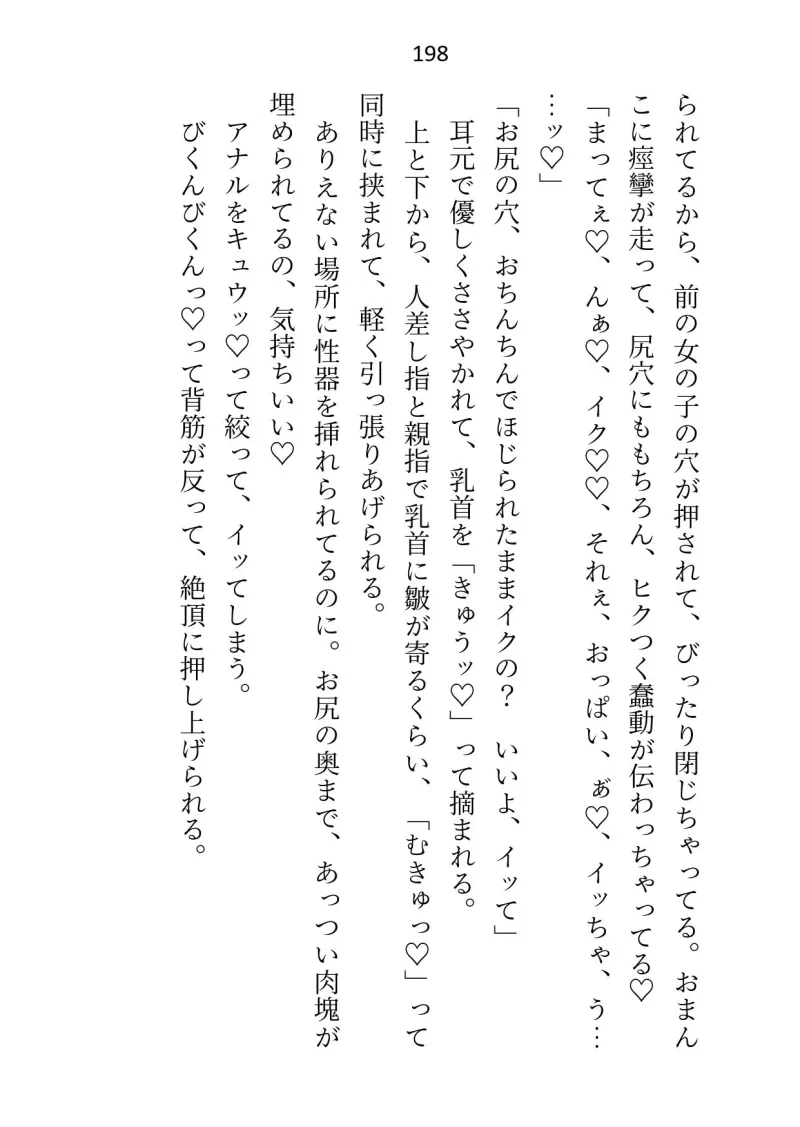 198
られてるから、前の女の子の穴が押されて、びったり閉じちゃってる。おまん
こに痙攣が走って、尻穴にももちろん、ヒクつく蠢動が伝わっちゃってる♡
「まってぇ♡、んぁ♡、イク♡♡、それぇ、おっぱい、ぁ゛♡、イッちゃ、う…
…ッ♡」
「お尻の穴、おちんちんでほじられたままイクの？　いいよ、イッて」
耳元で優しくささやかれて、乳首を「きゅうッ♡」って摘まれる。
上と下から、人差し指と親指で乳首に皺が寄るくらい、「むきゅっ♡」って
同時に挟まれて、軽く引っ張りあげられる。
ありえない場所に性器を挿れられてるのに。お尻の奥まで、あっつい肉塊が
埋められてるの、気持ちいい♡
アナルをキュウッ♡って絞って、イッてしまう。
びくんびくんっ♡って背筋が反って、絶頂に押し上げられる。